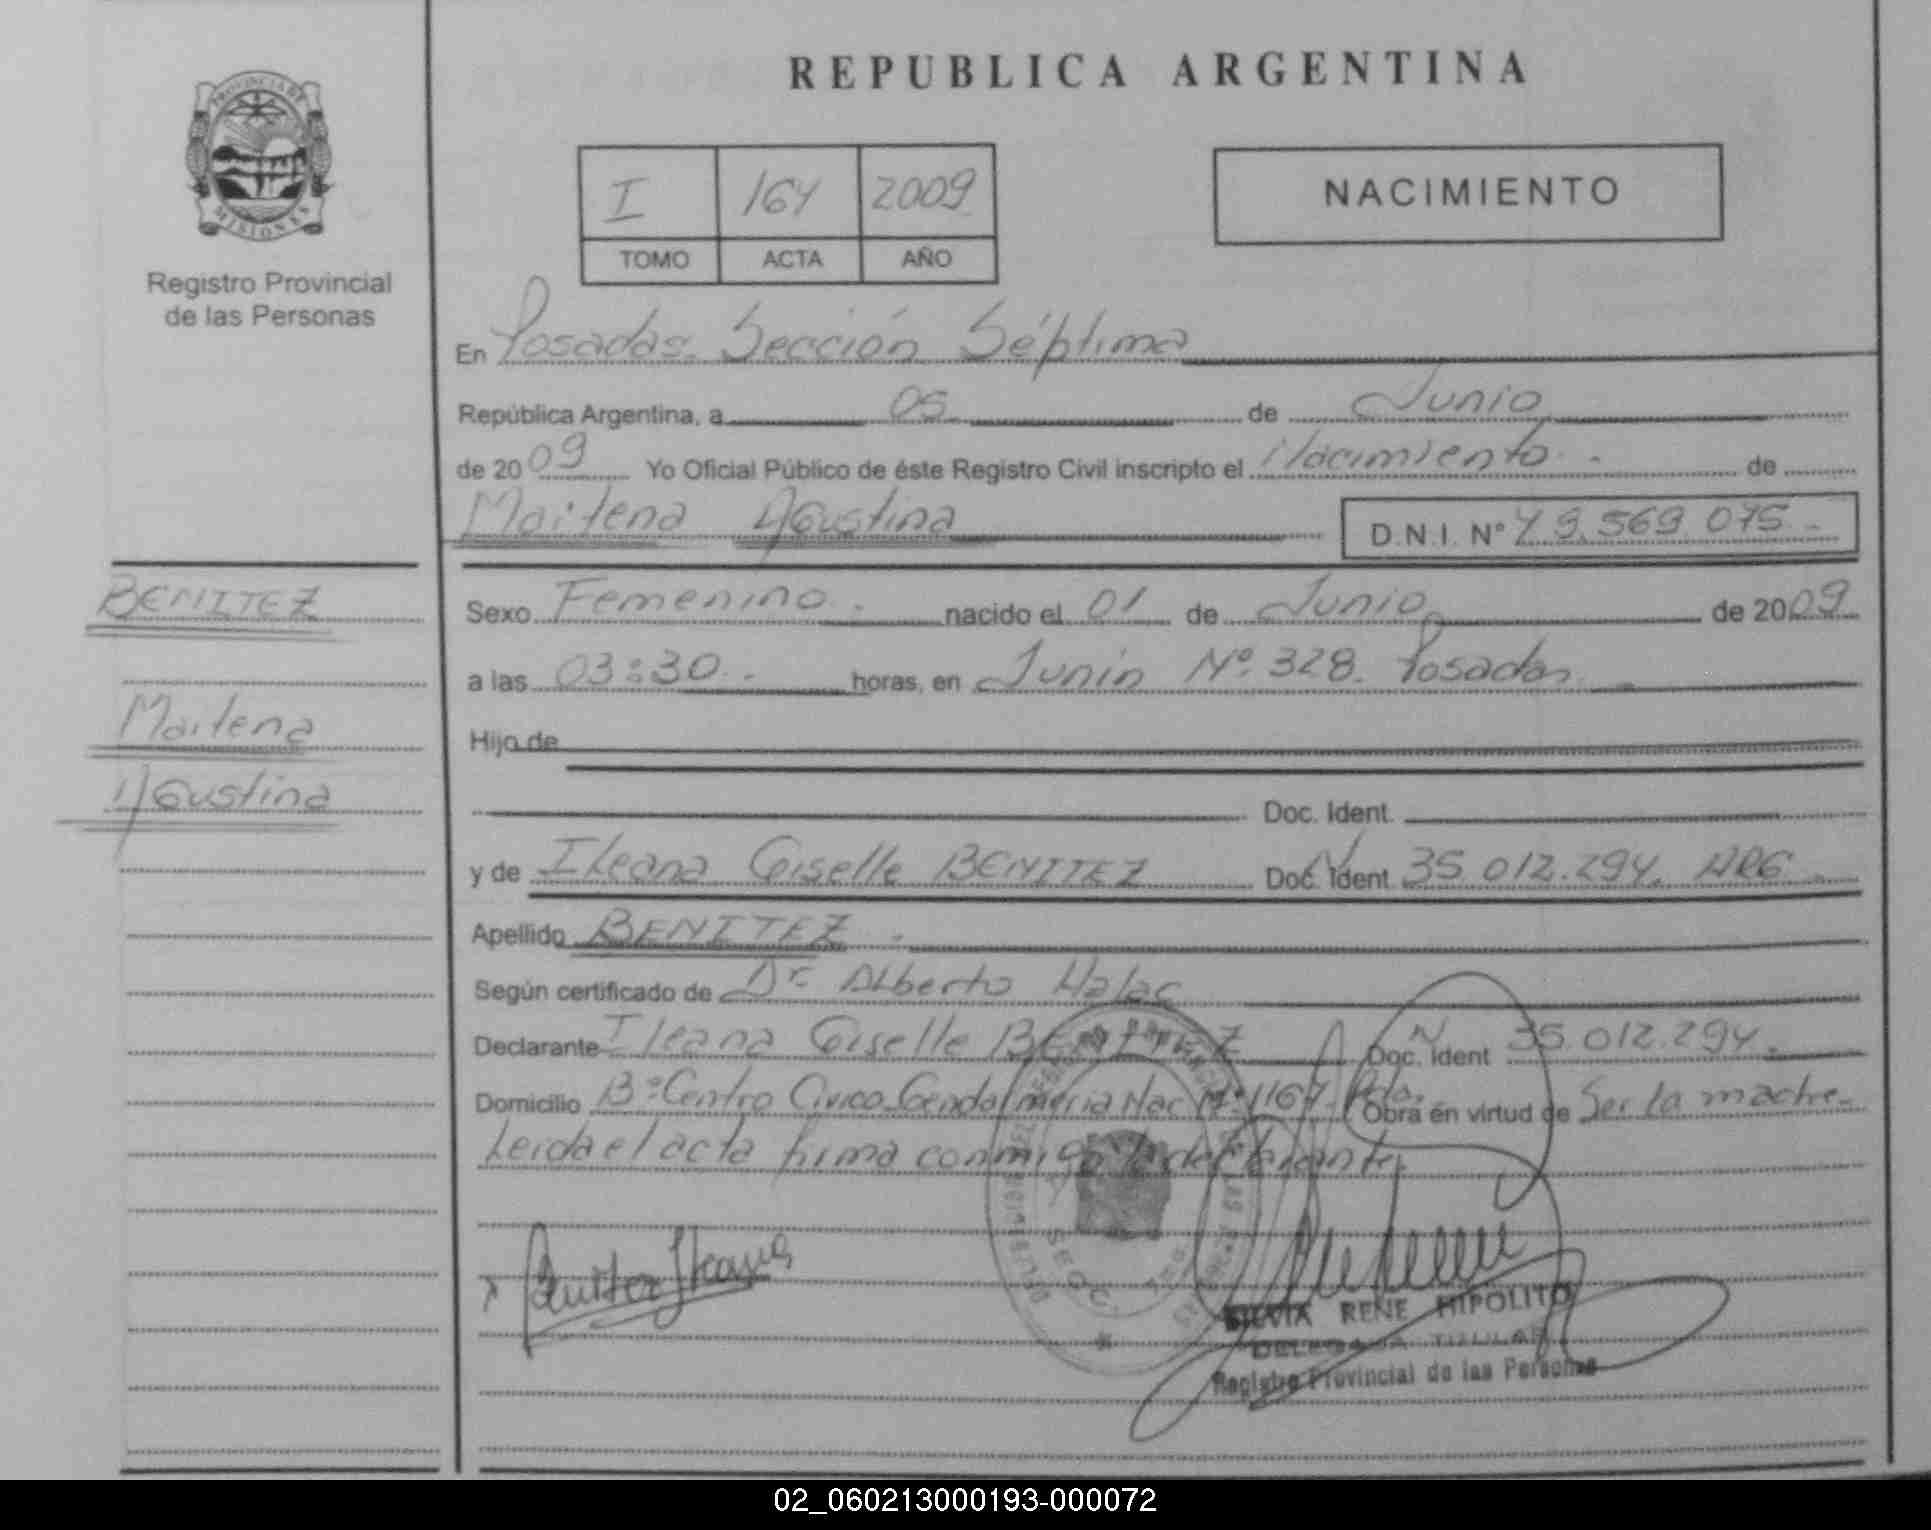 REPUBLICA ARGENTINA
PROVINCIA DE
MISIONES
Registro Provincial
de las Personas
I 164 2009
TOMO ACTA AÑO
NACIMIENTO
En Posadas. Sección Séptima
República Argentina, a 05 de Junio
de 2009 Yo Oficial Público de éste Registro Civil inscripto el Nacimiento.- de
Maitena Agustina D.N.I. Nº 49.569.075.-
BENITEZ
Maitena
Agustina
Sexo Femenino. nacido el 01 de Junio de 2009
a las 03:30.- horas, en Junín Nº 328. Posadas
Hijo de
Doc. Ident.
y de Ileana Giselle BENITEZ Doc. Ident 35.012.294. ARG.-
Apellido BENITEZ.-
Según certificado de Dr. Alberto Halac
Declarante Ileana Giselle BENITEZ Doc. Ident 35.012.294.
Domicilio Bº Centro Cívico Gendarmería Nac Nº 1167. Pdas. Obra en virtud de Ser la madre.-
Leida el acta firma conmigo la declarante.
Benitez Ileana
SILVIA RENE HIPOLITO
DELEGADA TITULAR
Registro Provincial de las Personas
02_060213000193-000072